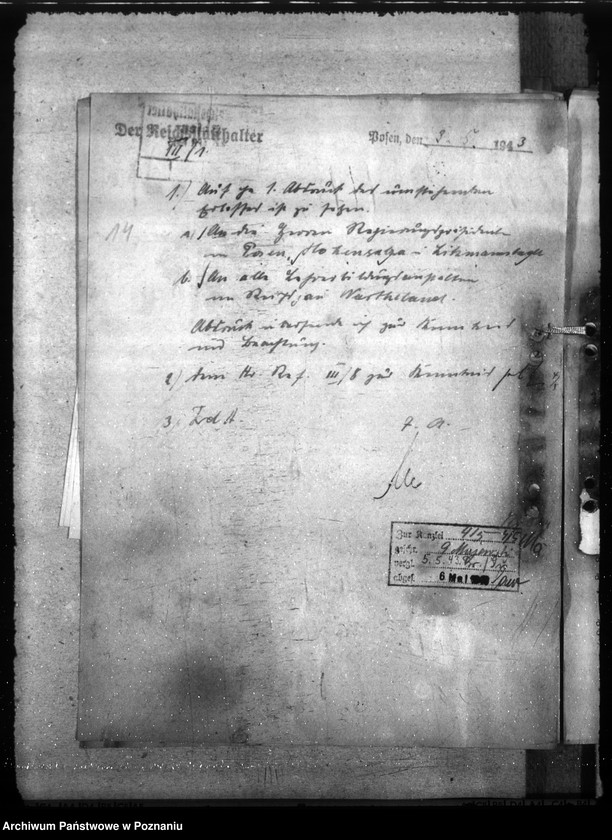 Der Reichsstatthalter
III/1.
Posen, den 3. 5. 1943
1.) Auf je 1. Abdruck des umstehenden
Erlasses ist zu setzen.
14.
a.) An die Herren Regierungspräsidenten
in Posen, Hohensalza u. Litzmannstadt
b.) An alle Lehrerbildungsanstalten
im Reichsgau Wartheland.
Abdruck übersende ich zur Kenntnis
und Beachtung.
2.) dem Ref. III/8 zur Kenntnis
3.) Z.d.A.
J. A.
Zur Kanzlei 4/5
geschr.
vergl. 5. 5. 43.
abges. 6 Mai
Archiwum Państwowe w Poznaniu